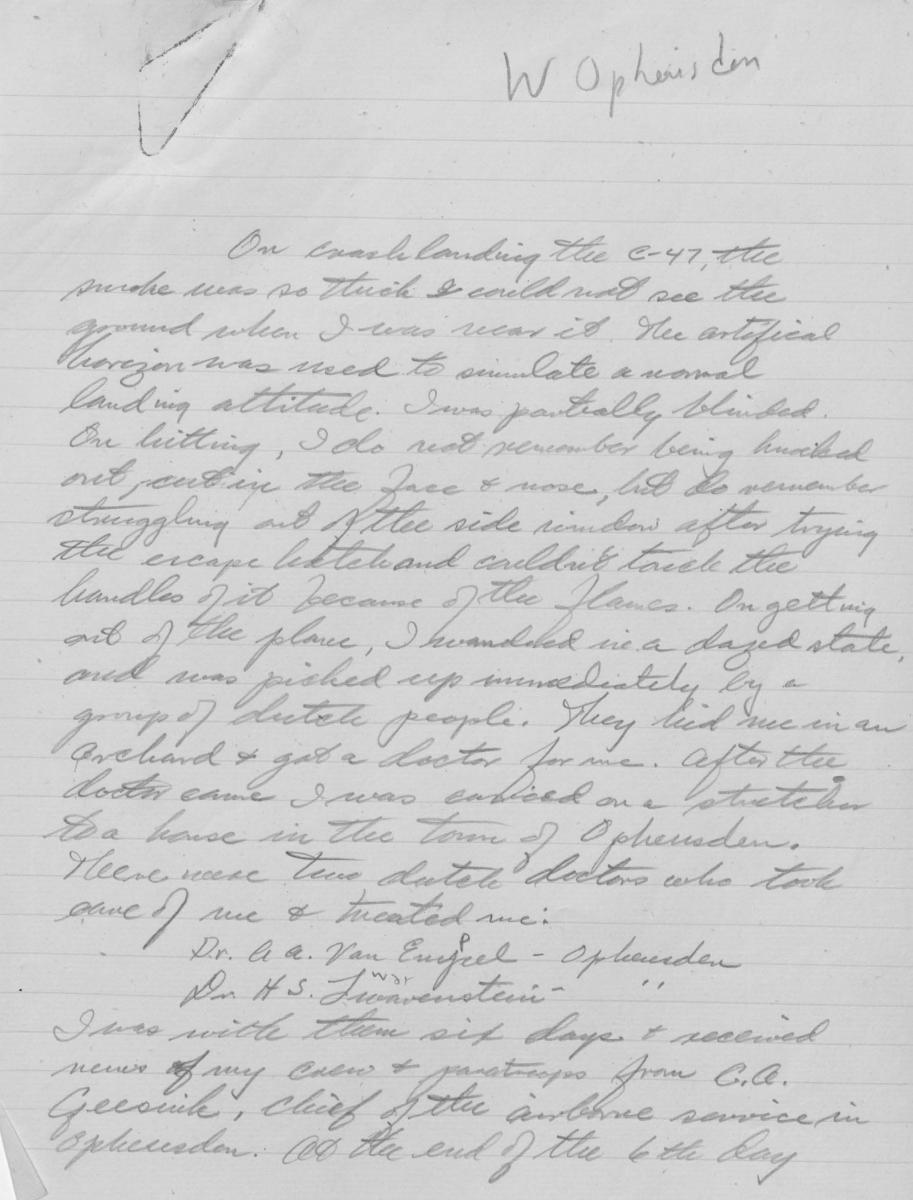 W Opheusden
On crash landing the C-47, the
smoke was so thick I could not see the
ground when I was near it. The artifical
horizon was used to simulate a normal
landing attitude. I was partially blinded.
On hitting, I do not remember being knocked
out, cut in the face & nose, but do remember
struggling out of the side window after trying
the escape hatch and couldn't touch the
handles of it because of the flames. On getting
out of the plane, I wandered in a dazed state,
and was picked up immediately by a
group of dutch people. They hid me in an
orchard & got a doctor for me. After the
doctor came I was carried on a stretcher
to a house in the town of Opheusden.
There were two dutch doctors who took
care of me & treated me:
Dr. A A. Van - Opheusden
Dr. H S. - "
I was with them six days & received
news of my crew & paratroops from C.A.
Geesink, chief of the airborne service in
Opheusden. At the end of the 6th day